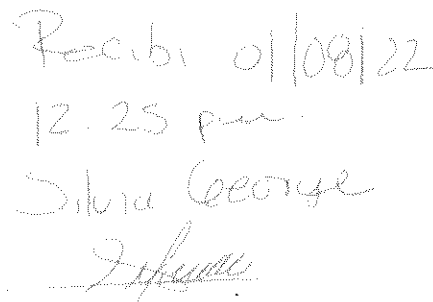 Recibi 01/08/22
12.25 pm.
Silvia George